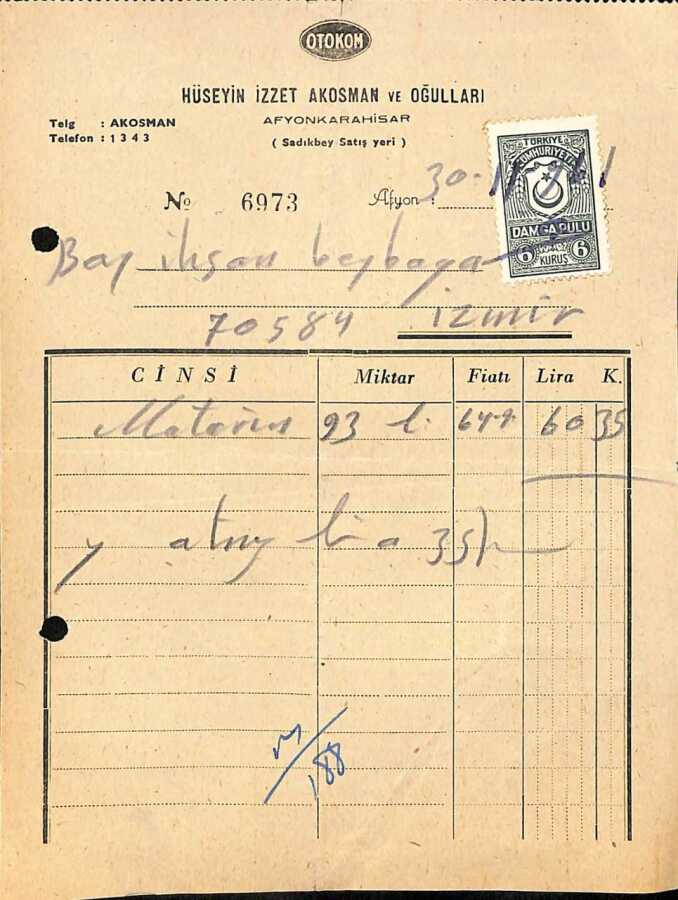 OTOKOM
HÜSEYİN İZZET AKOSMAN VE OĞULLARI
AFYONKARAHİSAR
Telg : AKOSMAN
Telefon : 1343
( Sadıkbey Satış yeri )
TÜRKİYE
CUMHURİYETİ
DAMGA PULU
6 KURUŞ 6
№ 6973
Afyon : 30-11-961
Bay ihsan beybaga
70584 izmir
CİNSİ Miktar Fiatı Lira K.
Motorin 93 l. 64.9 60 35
y lira 35
188